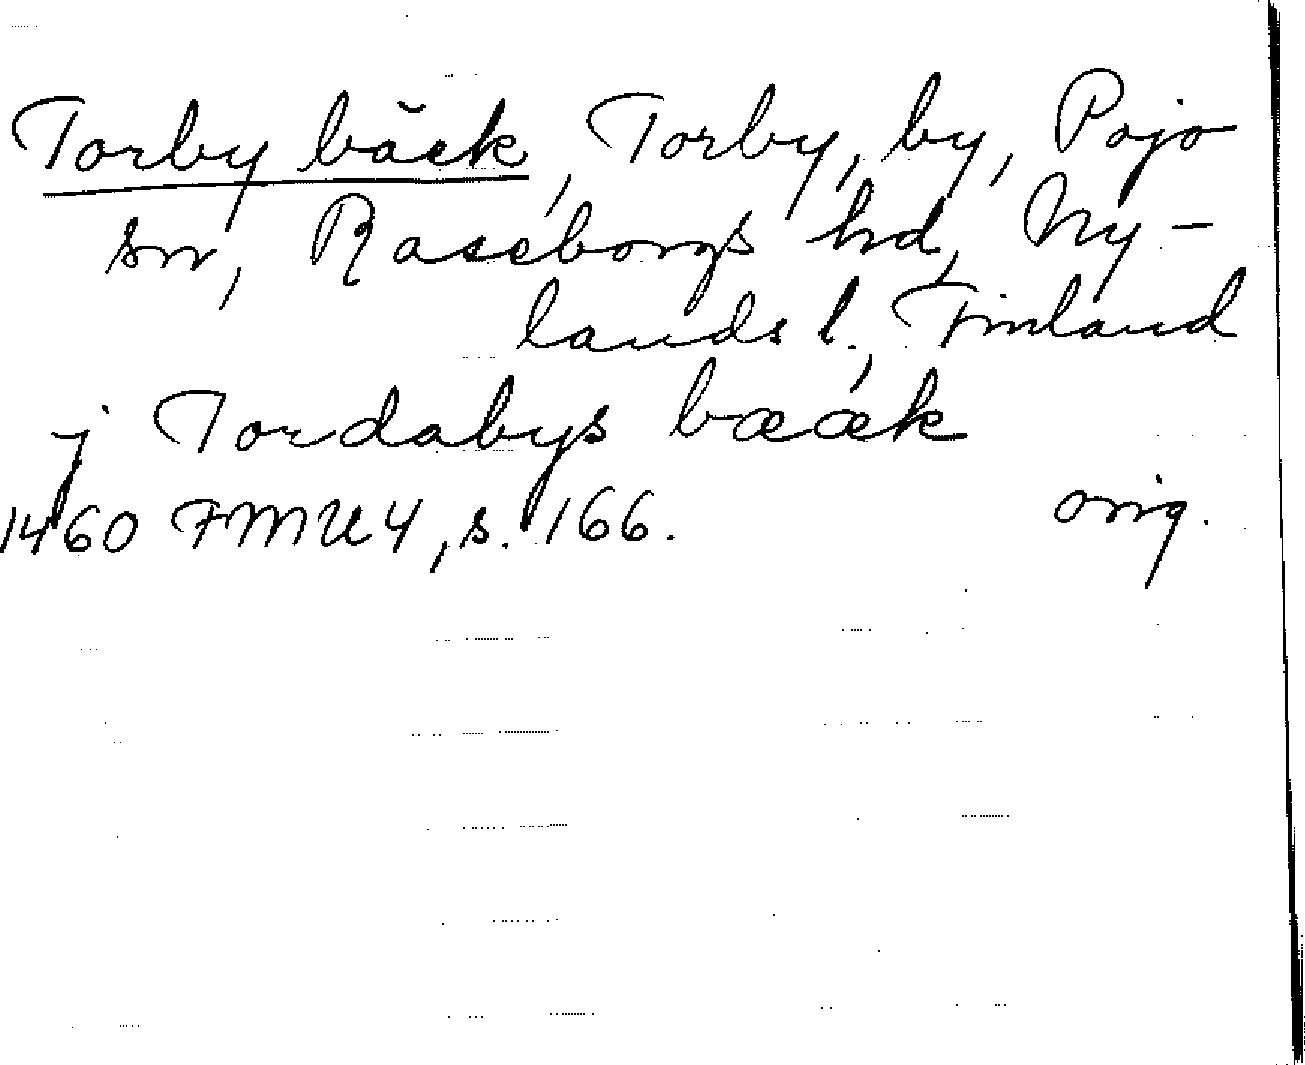 Torby bäck, Torby, by, Pojo
sn, Raseborgs hd, Ny-
lands l., Finland
j Tordabys bææk
1460 FMU 4, s. 166. orig.